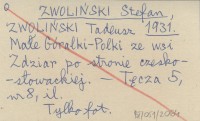 ZWOLIŃSKI Stefan,
ZWOLIŃSKI Tadeusz 1931.
Małe Góralki-Polki ze wsi
Zdziar po stronie czesko-
-słowackiej. - Tęcza 5,
nr 8, il.
Tylko fot.